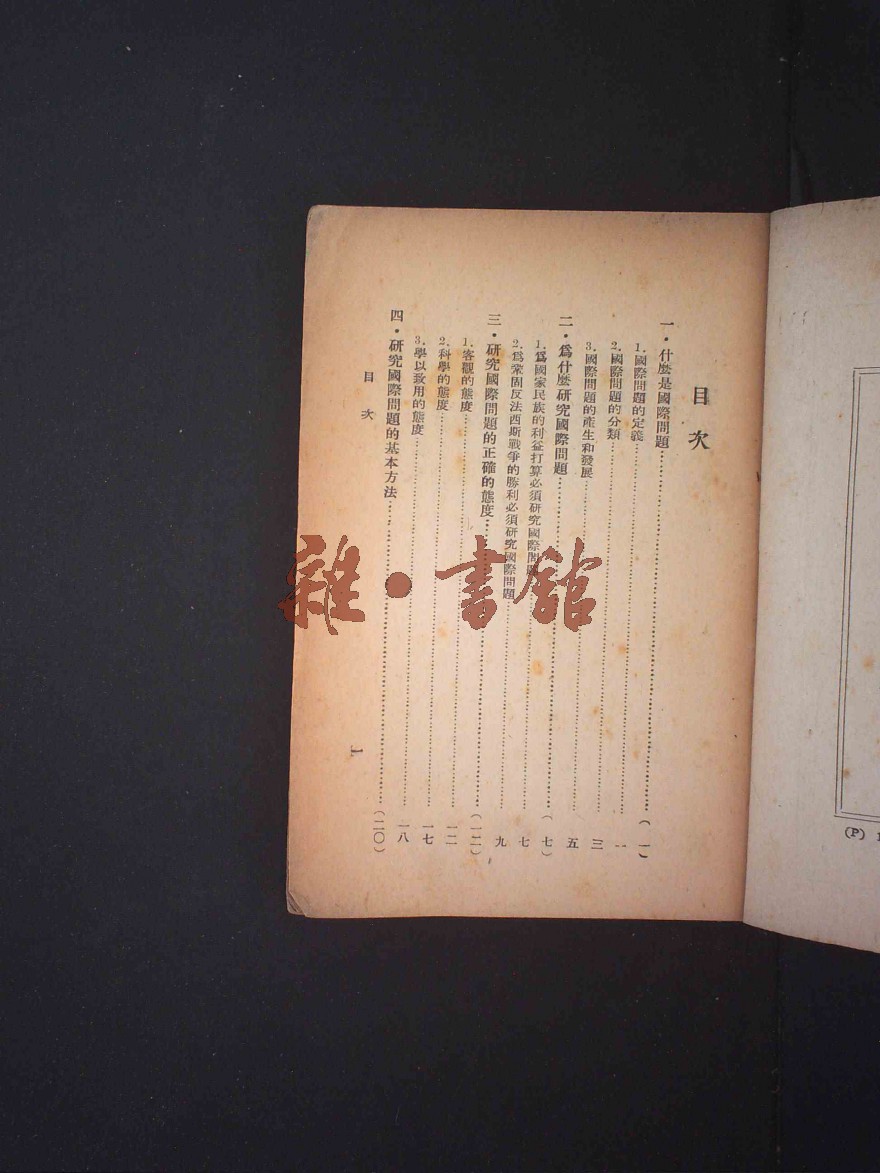 目次
一・什麼是國際問題……(一)
1.國際問題的定義……一
2.國際問題的分類……三
3.國際問題的產生和發展……五
二・爲什麼研究國際問題……(七)
1.爲國家民族的利益打算必須研究國際問題……七
2.爲鞏固反法西斯戰爭的勝利必須研究國際問題……九
三・研究國際問題的正確的態度……(一二)
1.客觀的態度……一二
2.科學的態度……一七
3.學以致用的態度……一八
四・研究國際問題的基本方法……(二〇)
目次
1
(P)
雜・書館